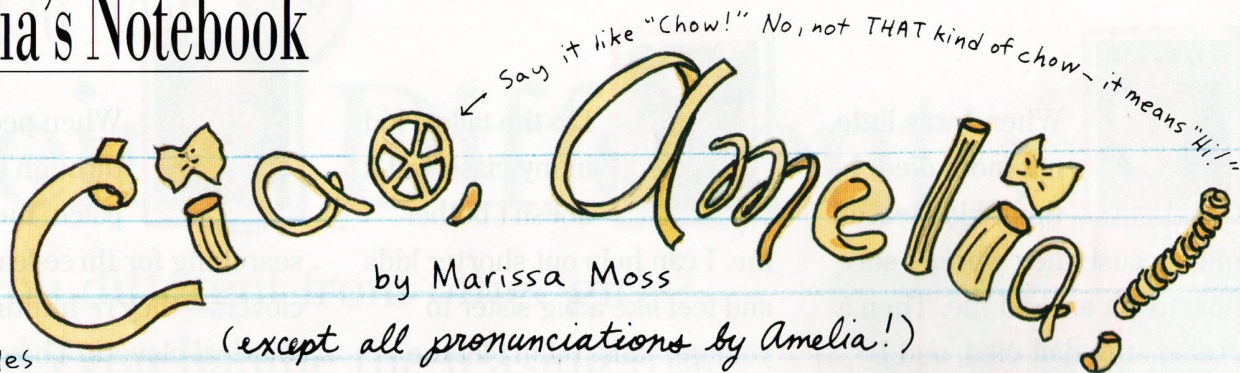 ia's Notebook
Say it like "Chow!" No, not THAT kind of chow - it means "Hi!"
Ciao, Amelia!
by Marissa Moss
(except all pronunciations by Amelia!)